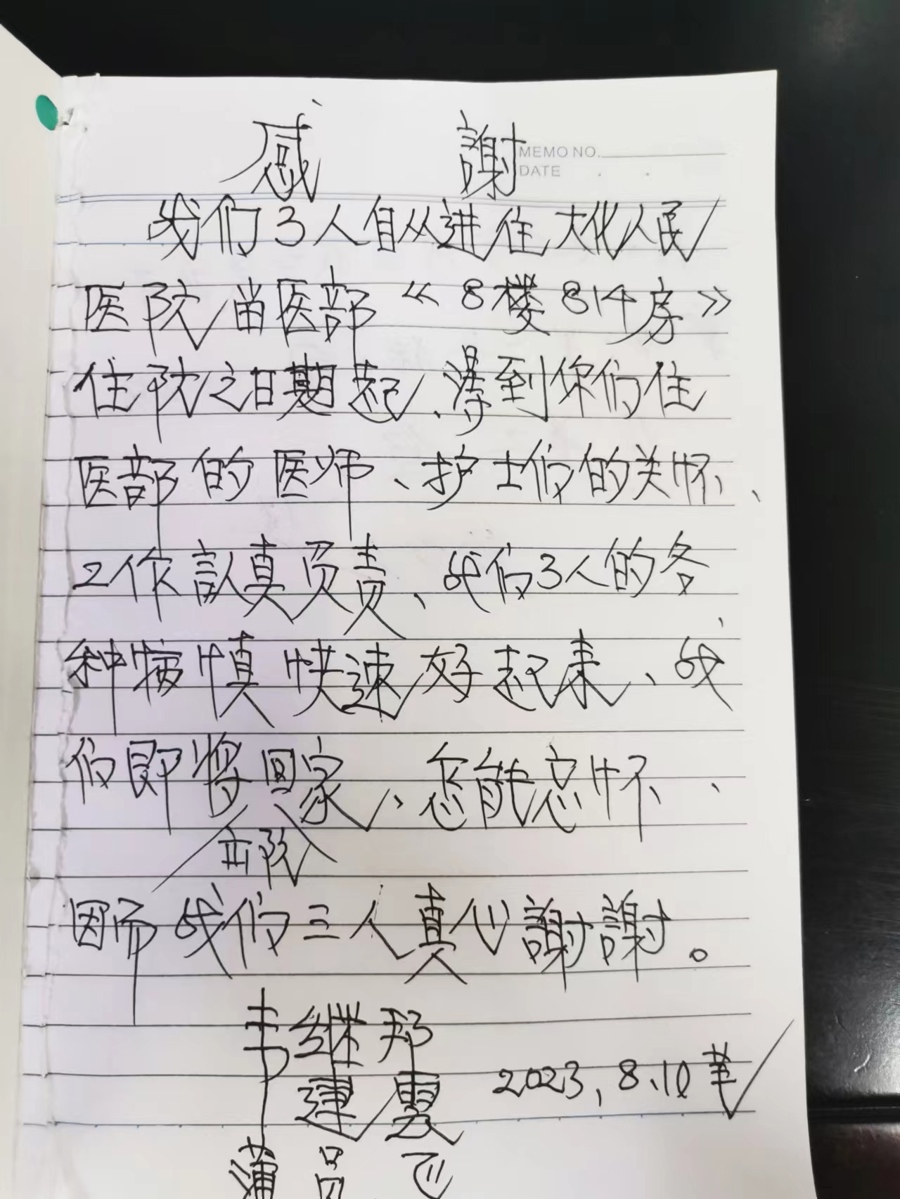 感 謝
MEMO NO.
DATE
我们3人自从进住大化人民
医院留医部《8楼814房》
住院之日期起、得到你们住
医部的医师、护士们的关怀、
工作認真负责、我们3人的各
种病情快速好起来、我
们即将回家、怎能忘怀、
出院
因而我们三人真心謝謝。
韦继邦
建
2023,8.10